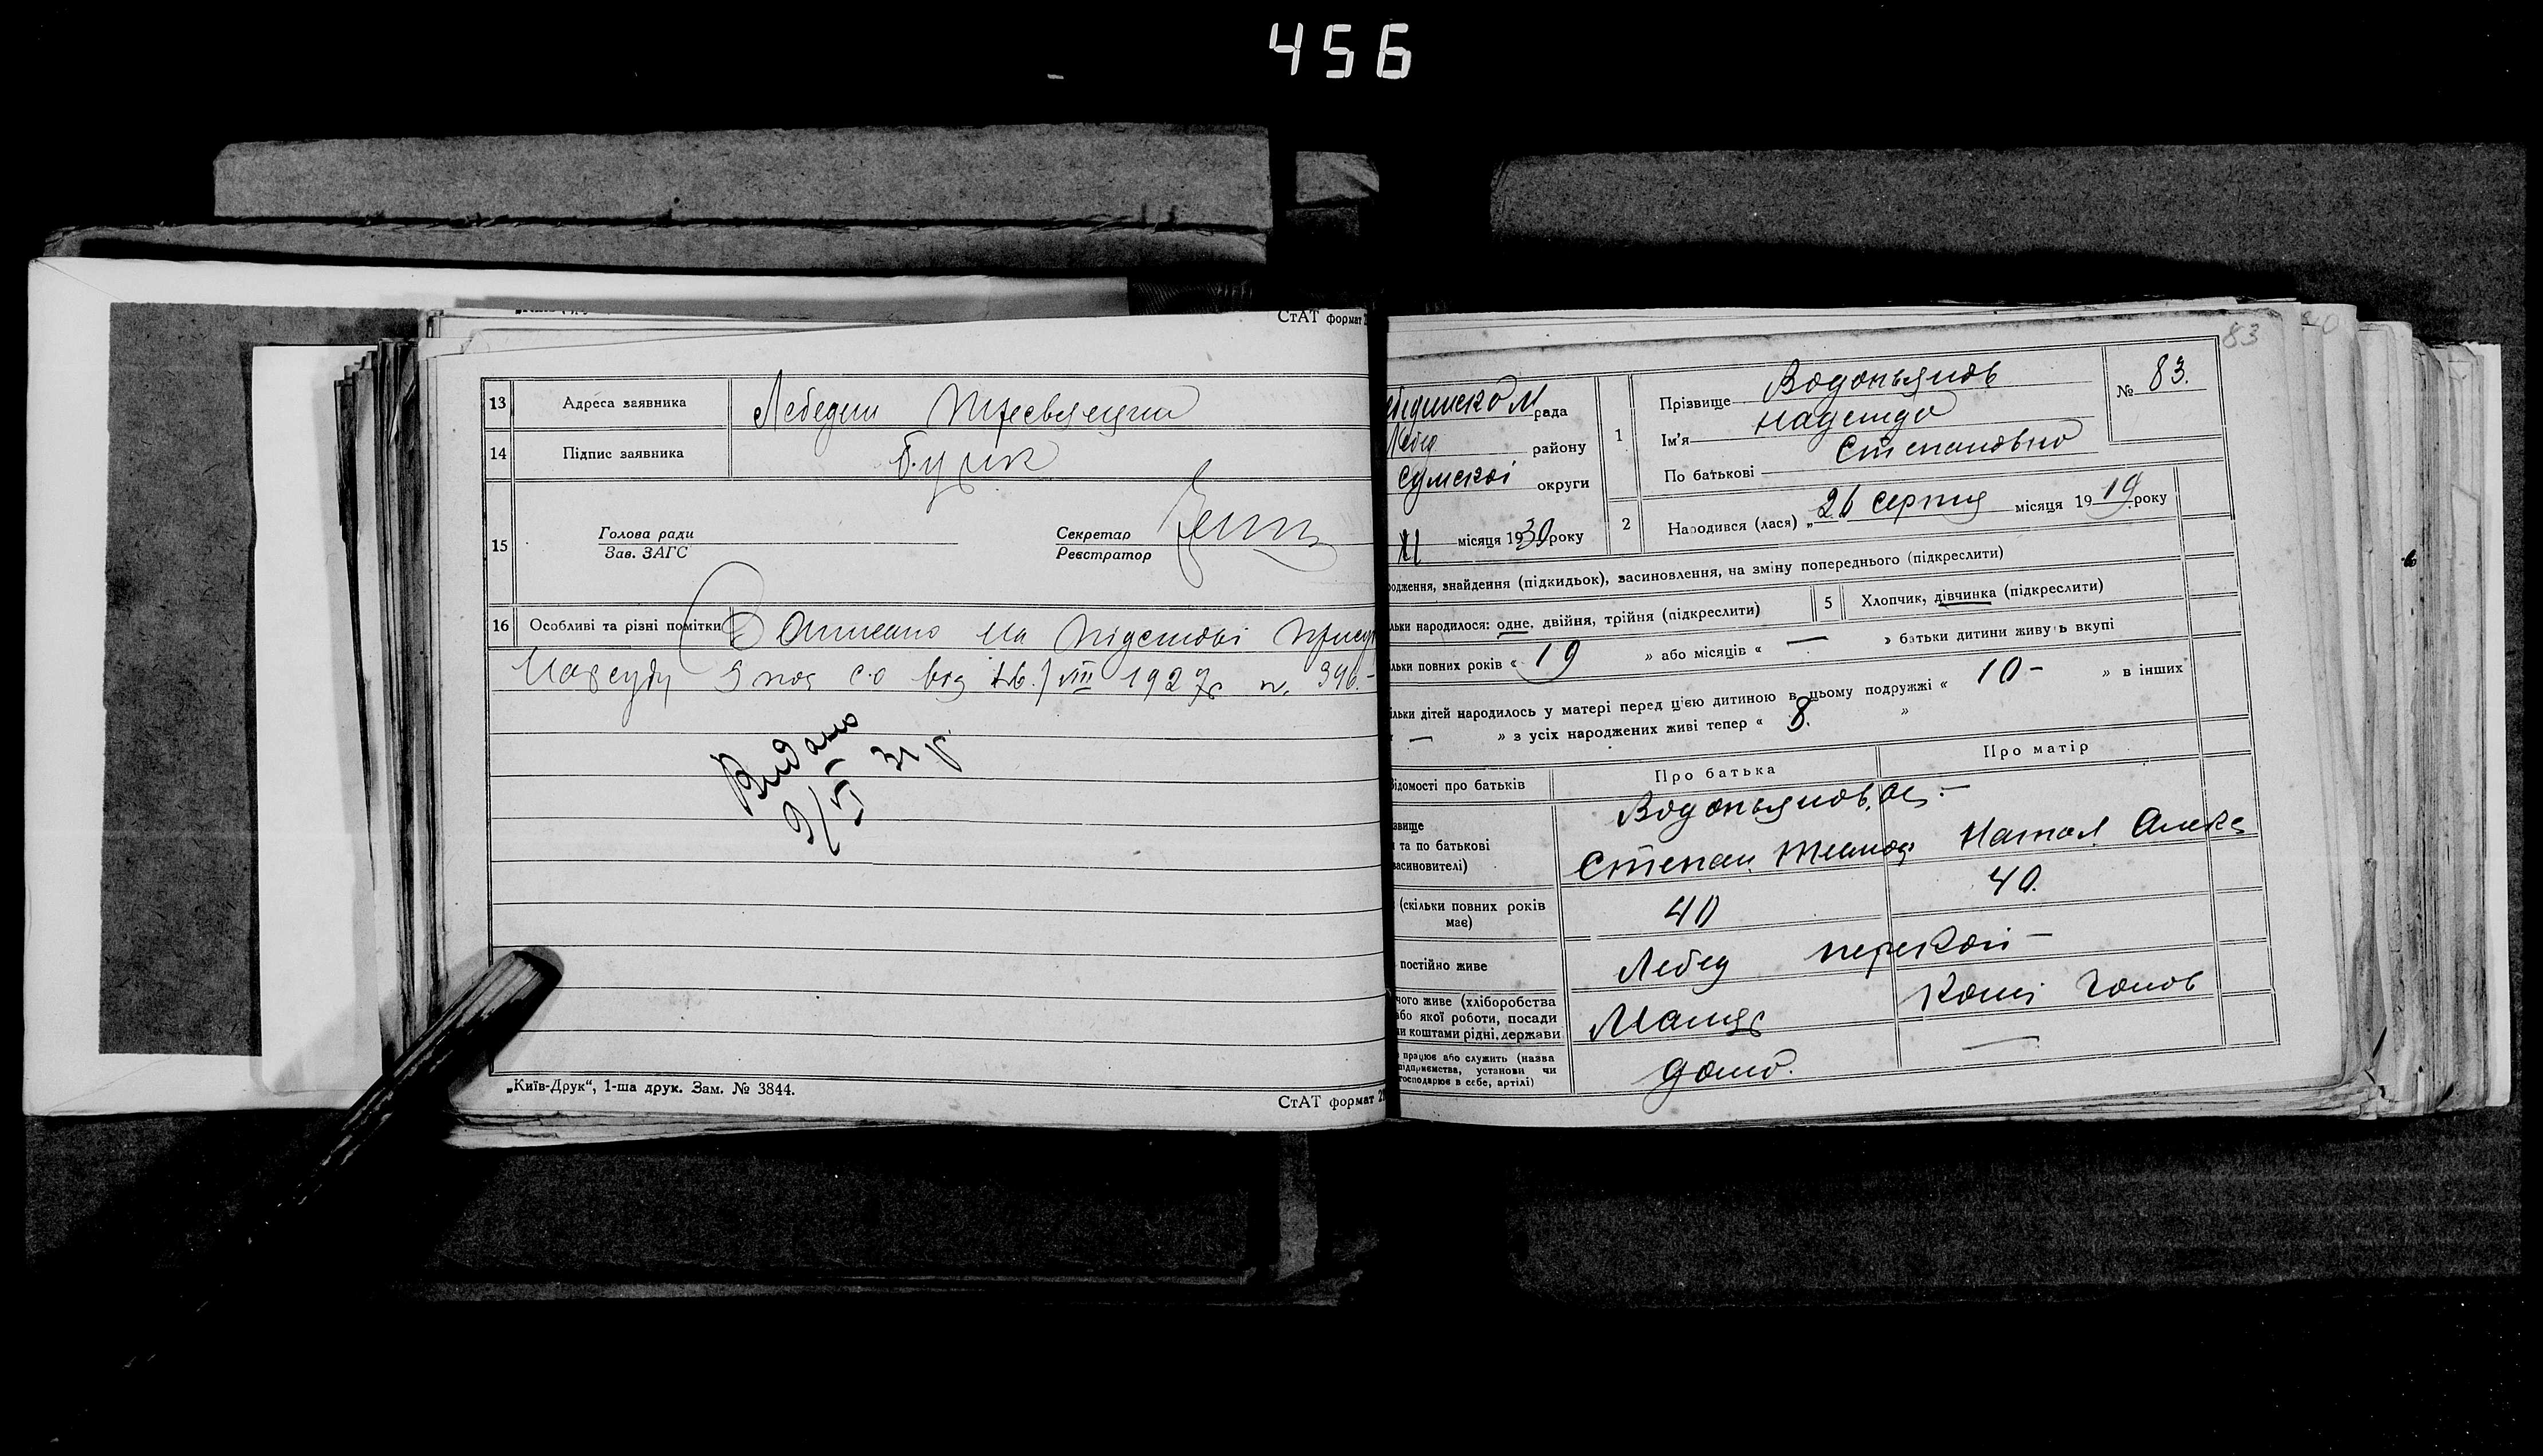 456
СтАТ формат 2
13 Адреса заявника Лебедин
14 Підпис заявника
15 Голова ради
Зав. ЗАГС
Секретар
Реєстратор
16 Особливі та різні помітки Записано на підставі присуд
Нарсуду від VIII 1927р 396.-
Видано
9/VI 31 р
„Київ-Друк“, 1-ша друк. Зам. № 3844.
СтАТ формат 2
83
ебединском рада
Лебед району
Сумскоі округи
XI місяця 1930 року
1 Прізвище Водопьянов
№ 83.
Ім'я Надежда
По батькові Степановна
2 Народився (лася) „26 серпня місяця 1919 року
одження, знайдення (підкидьок), засиновлення, на зміну попереднього (підкреслити)
льки народилося: одне, двійня, трійня (підкреслити) 5 Хлопчик, дівчинка (підкреслити)
льки повних років « 19 » або місяців « — » батьки дитини живуть вкупі
ільки дітей народилось у матері перед цією дитиною в цьому подружжі « 10 - » в інших
« — » з усіх народжених живі тепер « 8. »
ідомості про батьків Про батька Про матір
звище Водопьянов
та по батькові
засиновителі) Степан Натал Алекс
(скільки повних років має) 40 40.
постійно живе Лебед
чого живе (хліборобства
або якої роботи, посади
и коштами рідні, держави
працює або служить (назва
підприємства, установи чи
господарює в себе, артілі)